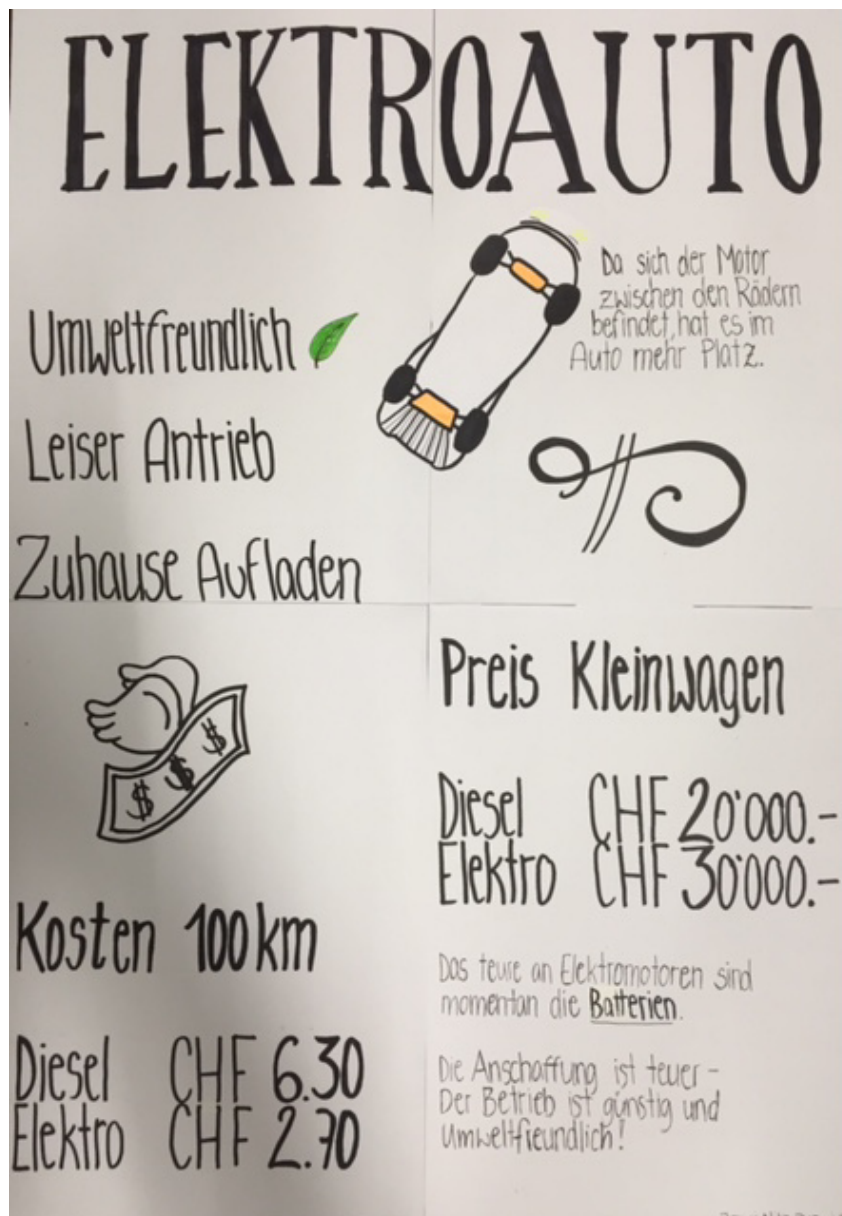 ELEKTROAUTO
Umweltfreundlich
Leiser Antrieb
Zuhause Aufladen
Da sich der Motor
zwischen den Rädern
befindet, hat es im
Auto mehr Platz.
$ $ $
Kosten 100 km
Diesel CHF 6.30
Elektro CHF 2.70
Preis Kleinwagen
Diesel CHF 20'000.-
Elektro CHF 30'000.-
Das teure an Elektromotoren sind
momentan die Batterien.
Die Anschaffung ist teuer -
Der Betrieb ist günstig und
Umweltfreundlich!